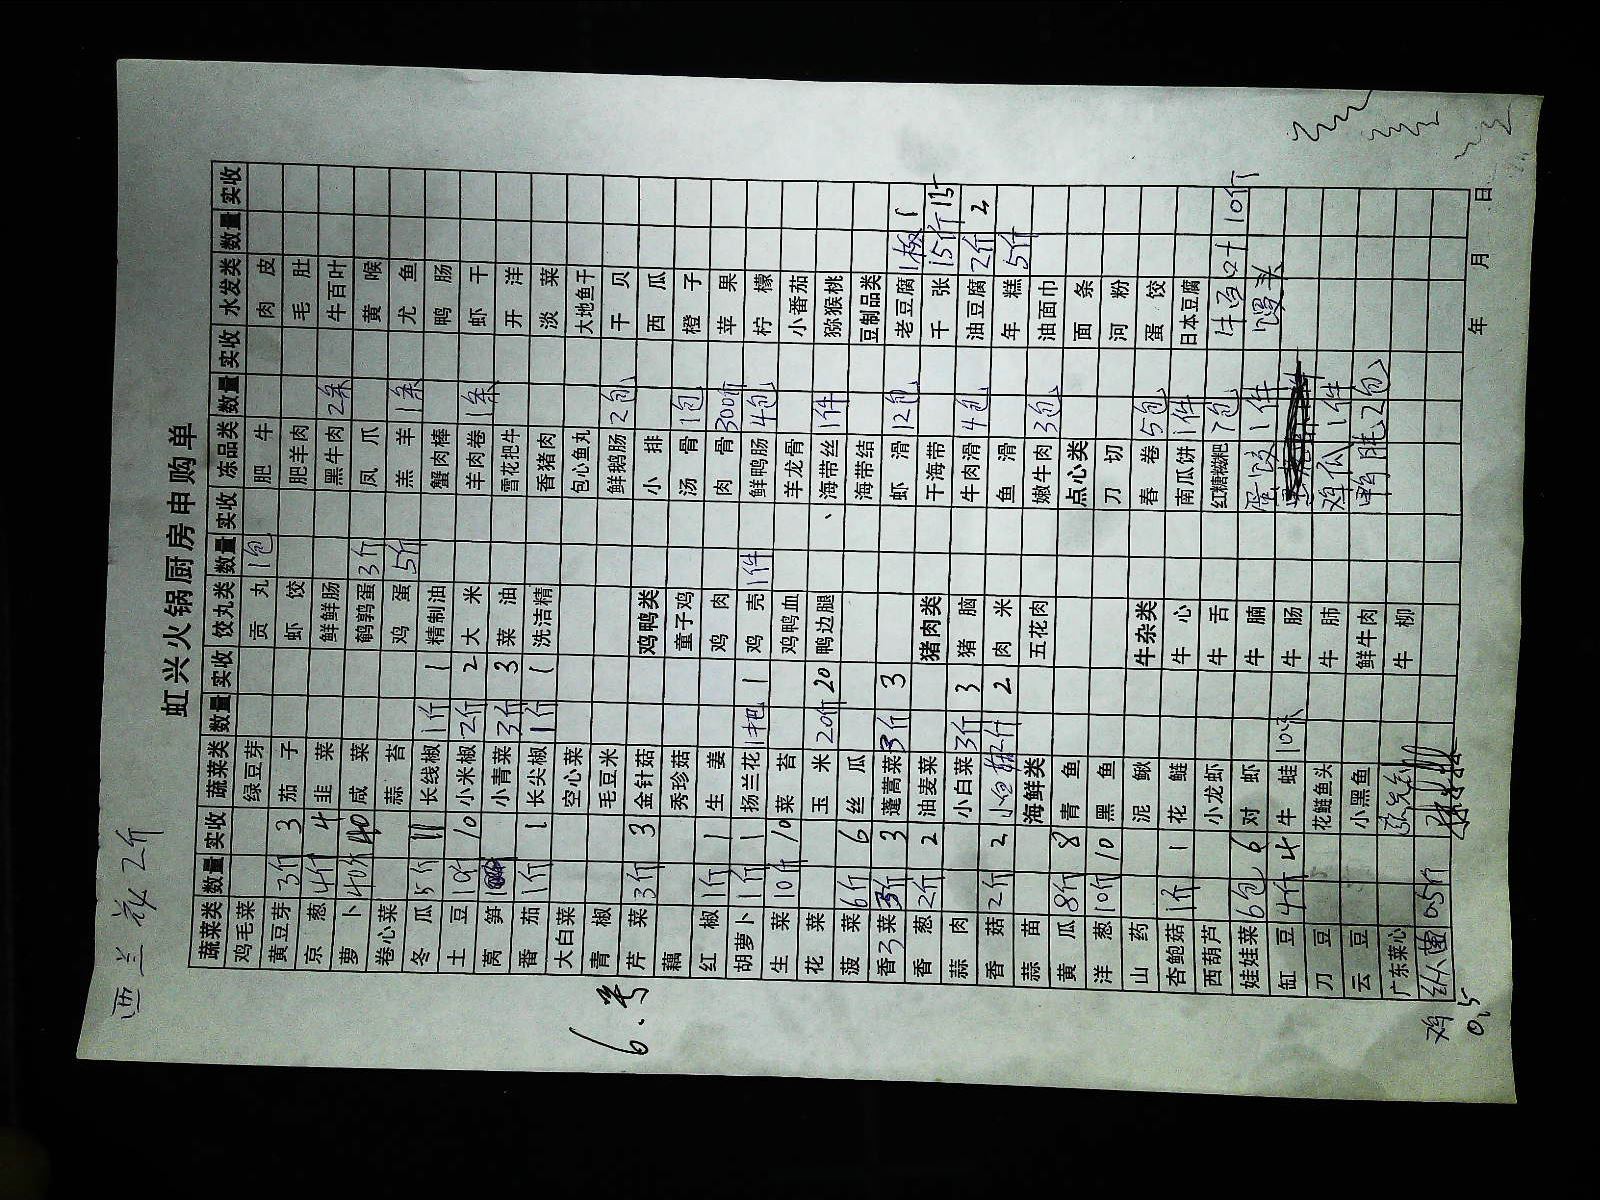 西兰花2斤
虹兴火锅厨房申购单
蔬菜类 数量 实收 蔬菜类 数量 实收 饺丸类 数量 实收 冻品类 数量 实收 水发类 数量 实收
鸡毛菜 绿豆芽 贡丸 1包 肥牛 肉皮
黄豆芽 3斤 3 茄子 虾饺 肥羊肉 毛肚
京葱 4斤 4 韭菜 鲜鲜肠 黑牛肉 2条 牛百叶
萝卜 40斤 40 咸菜 鹌鹑蛋 3斤 凤爪 黄喉
卷心菜 蒜苔 鸡蛋 5斤 羔羊 1条 尤鱼
冬瓜 15斤 11 长线椒 1斤 1 精制油 蟹肉棒 鸭肠
土豆 10斤 10 小米椒 2斤 2 大米 羊肉卷 1条 虾干
莴笋 小青菜 3斤 3 菜油 雪花把牛 开洋
番茄 1斤 1 长尖椒 1斤 1 洗洁精 香猪肉 淡菜
大白菜 空心菜 包心鱼丸 大地鱼干
青椒 毛豆米 鲜鹅肠 2包 干贝
芹菜 3斤 3 金针菇 鸡鸭类 小排 西瓜
藕 秀珍菇 童子鸡 汤骨 1包 橙子
红椒 1斤 1 生姜 鸡肉 肉骨 300斤 苹果
胡萝卜 1斤 1 扬兰花 1把 1 鸡壳 1件 鲜鸭肠 4包 柠檬
生菜 10斤 10 菜苔 鸡鸭血 羊龙骨 小番茄
花菜 玉米 20斤 20 鸭边腿 海带丝 1件 猕猴桃
菠菜 6斤 6 丝瓜 海带结 豆制品类
香菜 3斤 3 蓬蒿菜 3斤 3 虾滑 12包 老豆腐 1板 1
香葱 2斤 2 油麦菜 猪肉类 干海带 千张 15斤 15
蒜肉 小白菜 3斤 3 猪脑 牛肉滑 4包 油豆腐 2斤 2
香菇 2斤 2 2 肉米 鱼滑 年糕 5斤
蒜苗 海鲜类 五花肉 嫩牛肉 3包 油面巾
黄瓜 8斤 8 青鱼 点心类 面条
洋葱 10斤 10 黑鱼 刀切 河粉
山药 泥鳅 牛杂类 春卷 5包 蛋饺
杏鲍菇 1斤 1 花鲢 牛心 南瓜饼 1件 日本豆腐
西葫芦 小龙虾 牛舌 红糖糍粑 7包 牛百叶 10斤
娃娃菜 6包 6 对虾 牛腩 蛋饺 1件 馒头
缸豆 4斤 4 牛蛙 牛肠
刀豆 花鲢鱼头 牛肺 鸡爪 1件
云豆 小黑鱼 鲜牛肉 鸭肫 2包
广东菜心 牛柳
鸡纵菌 0.5斤 0.5
年 月 日
6.号